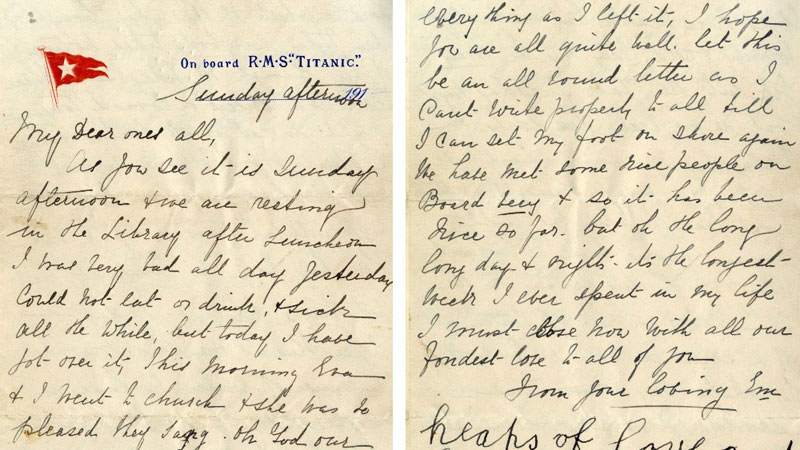 On board R·M·S "TITANIC."
Sunday afternoon 191
My Dear ones all,
As you see it is Sunday
afternoon & we are resting
in the Library after Luncheon
I was very bad all day yesterday
Could not eat or drink, & sick
all the while, but today I have
got over it, This Morning Eva
& I went to church & she was so
pleased they sang. Oh God our
everything as I left it, I hope
you are all quite well. let this
be an all round letter as I
Cant write properly to all till
I can set my foot on shore again
We have met some nice people on
Board Lucy & so it has been
nice so far. but oh the long
long days & nights. its the longest
Week I ever spent in my life
I must close now With all our
fondest love to all of you
From your loving Em
heaps of love